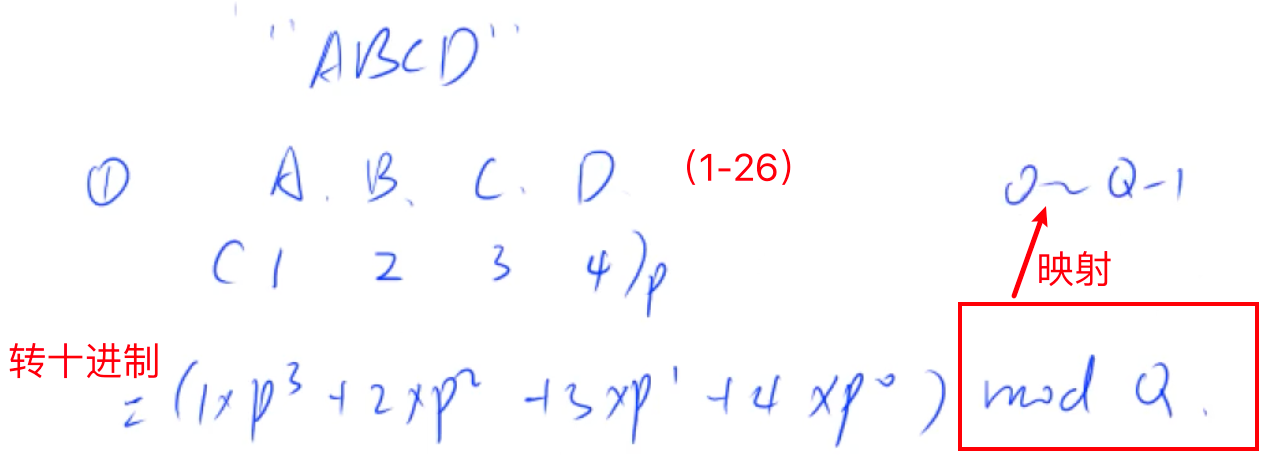 "ABCD"
① A. B、 C. D. (1-26) 0~Q-1
(1 2 3 4)p 映射
转十进制
=(1×p³+2×p²+3×p¹+4×p⁰) mod Q.